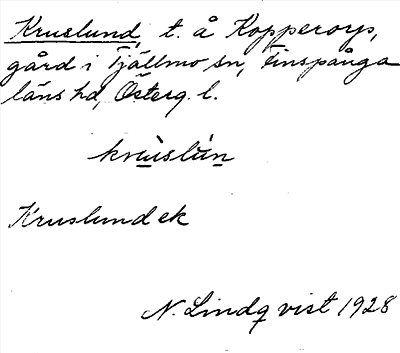 Kruslund, t. å Kopperorp,
gård i Tjällmo sn, Finspånga
läns hd, Österg. l.
krùslùn
Kruslund ek
N. Lindqvist 1928